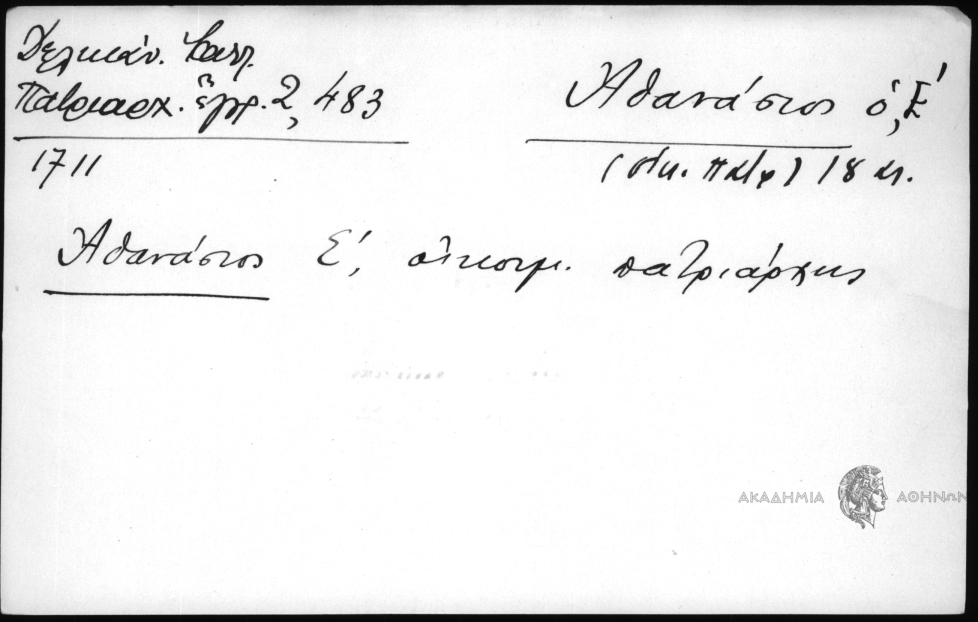 Δελικάν. Καλλ.
Πατριαρχ. ἔγγρ. 2, 483
1711
Ἀθανάσιος ὁ, Ε´
(οἰκ. πατρ) 18 αι.
Ἀθανάσιος Ε´, οἰκουμ. πατριάρχης
ΑΚΑΔΗΜΙΑ ΑΘΗΝΩΝ